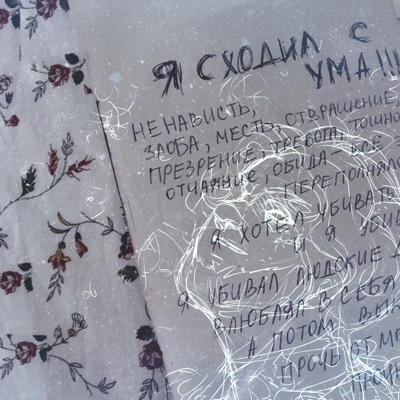 Я СХОДИЛ С
УМА!!!
НЕНАВИСТЬ,
ЗЛОБА, МЕСТЬ, ОТВРАЩЕНИЕ,
ПРЕЗРЕНИЕ, ТРЕВОГА, ТОШНО
ОТЧАЯНИЕ, ОБИДА ВСЕ Э
ПЕРЕПОЛНЯЛО
Я ХОТЕЛ УБИВАТЬ
И Я УБИВ
Я УБИВАЛ ЛЮДСКИЕ Д
ВЛЮБЛЯЛ В СЕБЯ
А ПОТОМ ВЫК
ПРОЧЬ ОТ МЕ
ПРОЧЬ